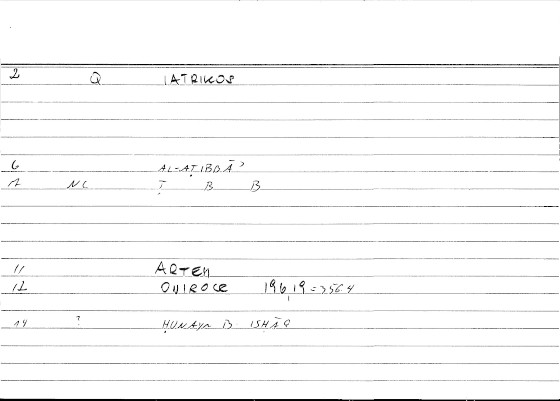 2 Q IATRIKOS
6 AL-AṬIBBĀʾ
NC Ṭ B B
11 ARTEM
12 ONIROCR 196,19 = 356,4
14 ? ḤUNAYN B ISḤĀQ